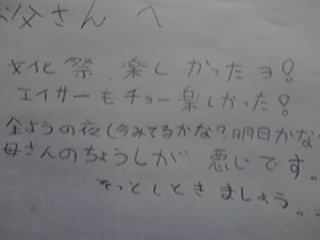 お父さんへ
文化祭、楽しかったヨ!
エイサーもチョー楽しかった!
金ようの夜しみてるかな?明日かな
母さんのちょうしが悪いです。
そっとしときましょう。